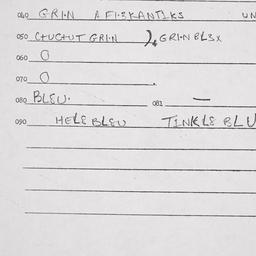 040 GRI·N A FI·EKANTIKS UN
050 CHUCHUT GRI·N ), GRI·N BLEX
060 O
070 O
080 BLEU· 081 —
090 HELE BLEU TINKLE BLU